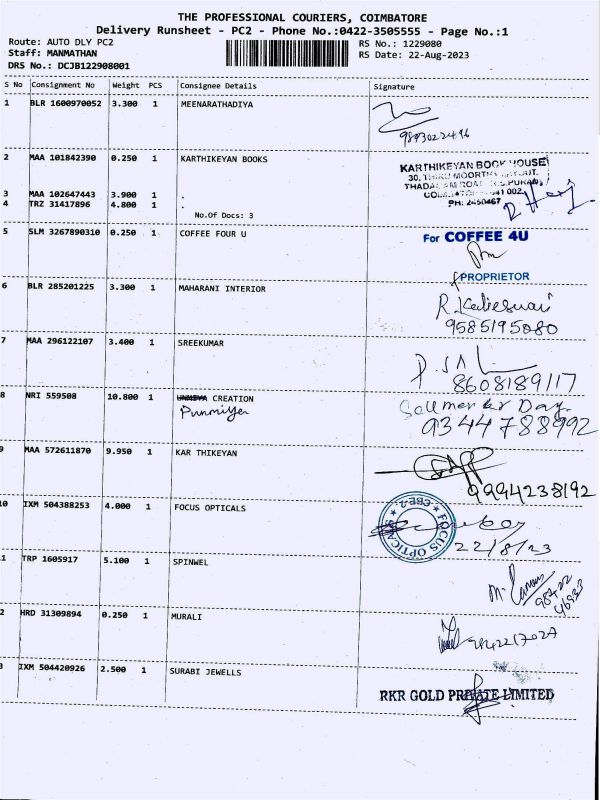 THE PROFESSIONAL COURIERS, COIMBATORE
Delivery Runsheet - PC2 - Phone No.:0422-3505555 - Page No.:1
Route: AUTO DLY PC2
RS No.: 1229080
Staff: MANMATHAN
RS Date: 22-Aug-2023
DRS No.: DCJB122908001
S No Consignment No Weight PCS Consignee Details Signature
1 BLR 1600970052 3.300 1 MEENARATHADIYA
2 MAA 101842390 0.250 1 KARTHIKEYAN BOOKS
KARTHIKEYAN BOOK HOUSE
3 MAA 102647443 3.900 1 .
4 TRZ 31417896 4.800 1 .
PH: 2450467
No.Of Docs: 3
5 SLM 3267890310 0.250 1 COFFEE FOUR U
For COFFEE 4U
PROPRIETOR
6 BLR 285201225 3.300 1 MAHARANI INTERIOR
9585195080
7 MAA 296122107 3.400 1 SREEKUMAR
8608189117
8 NRI 559508 10.800 1 CREATION
9344788992
9 MAA 572611870 9.950 1 KAR THIKEYAN
9994238192
10 IXM 504388253 4.000 1 FOCUS OPTICALS
FOCUS OPTICALS
CBE-2
22/8/23
1 TRP 1605917 5.100 1 SPINWEL
2 HRD 31309894 0.250 1 MURALI
3 IXM 504420926 2.500 1 SURABI JEWELLS
RKR GOLD PRIVATE LIMITED